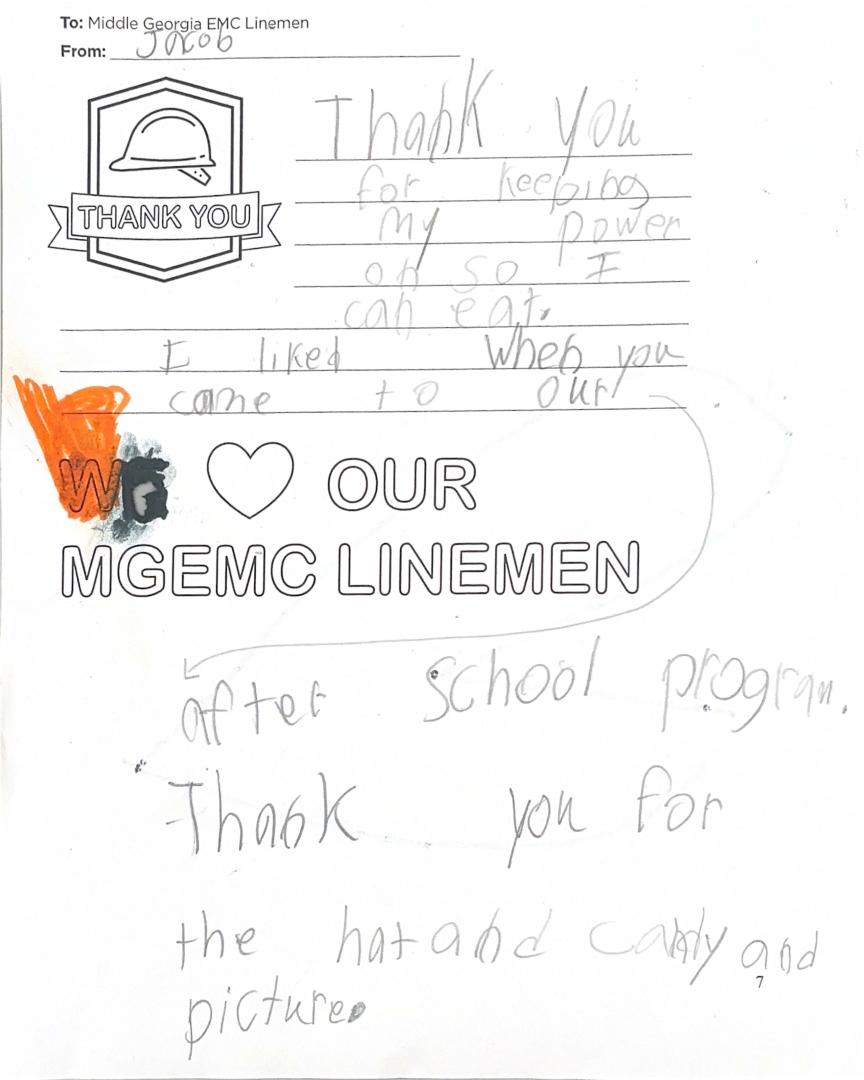 To: Middle Georgia EMC Linemen
From: Jacob
THANK YOU
Thank you
for keeping
my power
on so I
can eat.
I liked when you
came to our
WE OUR
MGEMC LINEMEN
after school program.
Thank you for
the hat and candy and
7
picture.